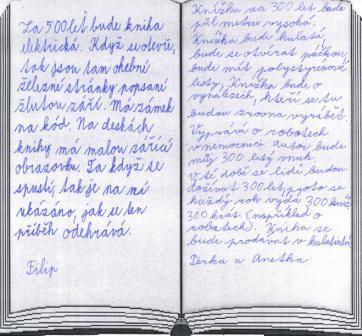 Za 500 let bude kniha
elektrická. Když se otevře,
tak jsou tam ohebné
železné stránky popsané
žlutou září. Má zámek
na kód. Na deskách
knihy má malou zářící
obrazovku. Ta když se
spustí, tak je na ní
ukázáno, jak se ten
příběh odehrává.
Filip
Knížka za 300 let bude
půl metru vysoká.
Knížka bude kulatá,
bude se otvírat páčkou,
bude mít polystyrenové
listy. Knížka bude o
vynálezech, které se tu
budou zrovna vyrábět.
Vypráví o robotech
v nemocnici. Autor bude
mít 300 letý muž.
V té době se lidi budou
dožívat 300 let, proto se
každý rok vydá 300 knih
300 krát (například o
robotech). Kniha se
bude prodávat v
Terka a Anetka